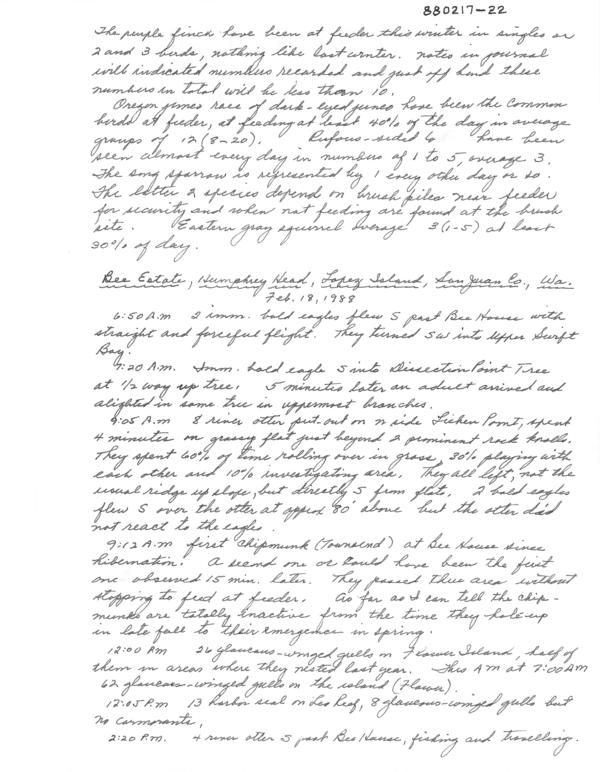 880217-22
The purple finch have been at feeder this winter in singles or
2 and 3 birds, nothing like last winter. notes in journal
will indicated numbers recorded and just off hand these
numbers in total will be less than 10.
Oregon junco race of dark-eyed junco have been the common
birds at feeder, at feeding at least 40% of the day in average
groups of 12 (8-20). Rufous-sided 6 have been
seen almost every day in numbers of 1 to 5, average 3.
The song sparrow is represented by 1 every other day or so.
The latter 2 species depend on brush piles near feeder
for security and when not feeding are found at the brush
site. Eastern gray squirrel average 3 (1-5) at least
30% of day.
Bee Estate, Humphrey Head, Lopez Island, San Juan Co., Wa.
Feb. 18, 1988
6:50 A.M 2 imm. bald eagles flew S past Bee House with
straight and forceful flight. They turned SW into Upper Swift
Bay.
7:20 A.M. Imm. bald eagle S into Dissection Point Tree
at 1/2 way up tree. 5 minutes later an adult arrived and
alighted in same tree in uppermost branches.
9:05 A.M 8 river otter put-out on N side Lichen Point, spent
4 minutes on grassy flat just beyond 2 prominent rock knolls.
They spent 60% of time rolling over in grass, 30% playing with
each other and 10% investigating area. They all left, not the
usual ridge up slope, but directly S from flats. 2 bald eagles
flew S over the otter at approx 80' above but the otter did
not react to the eagles.
9:12 A.M first chipmunk (Townsend) at Bee House since
hibernation. A second one or could have been the first
one observed 15 min. later. They passed thru area without
stopping to feed at feeder. As far as I can tell the chip-
munks are totally inactive from the time they hole up
in late fall to their emergence in spring.
12:00 PM 26 glaucous-winged gulls on Flower Island, half of
them in areas where they nested last year. This AM at 7:00 AM
62 glaucous-winged gulls on the island (Flower).
12:05 P.M 13 harbor seal on Leo Reef, 8 glaucous-winged gulls but
no cormorants.
2:20 P.M. 4 river otter S past Bee House, fishing and travelling.